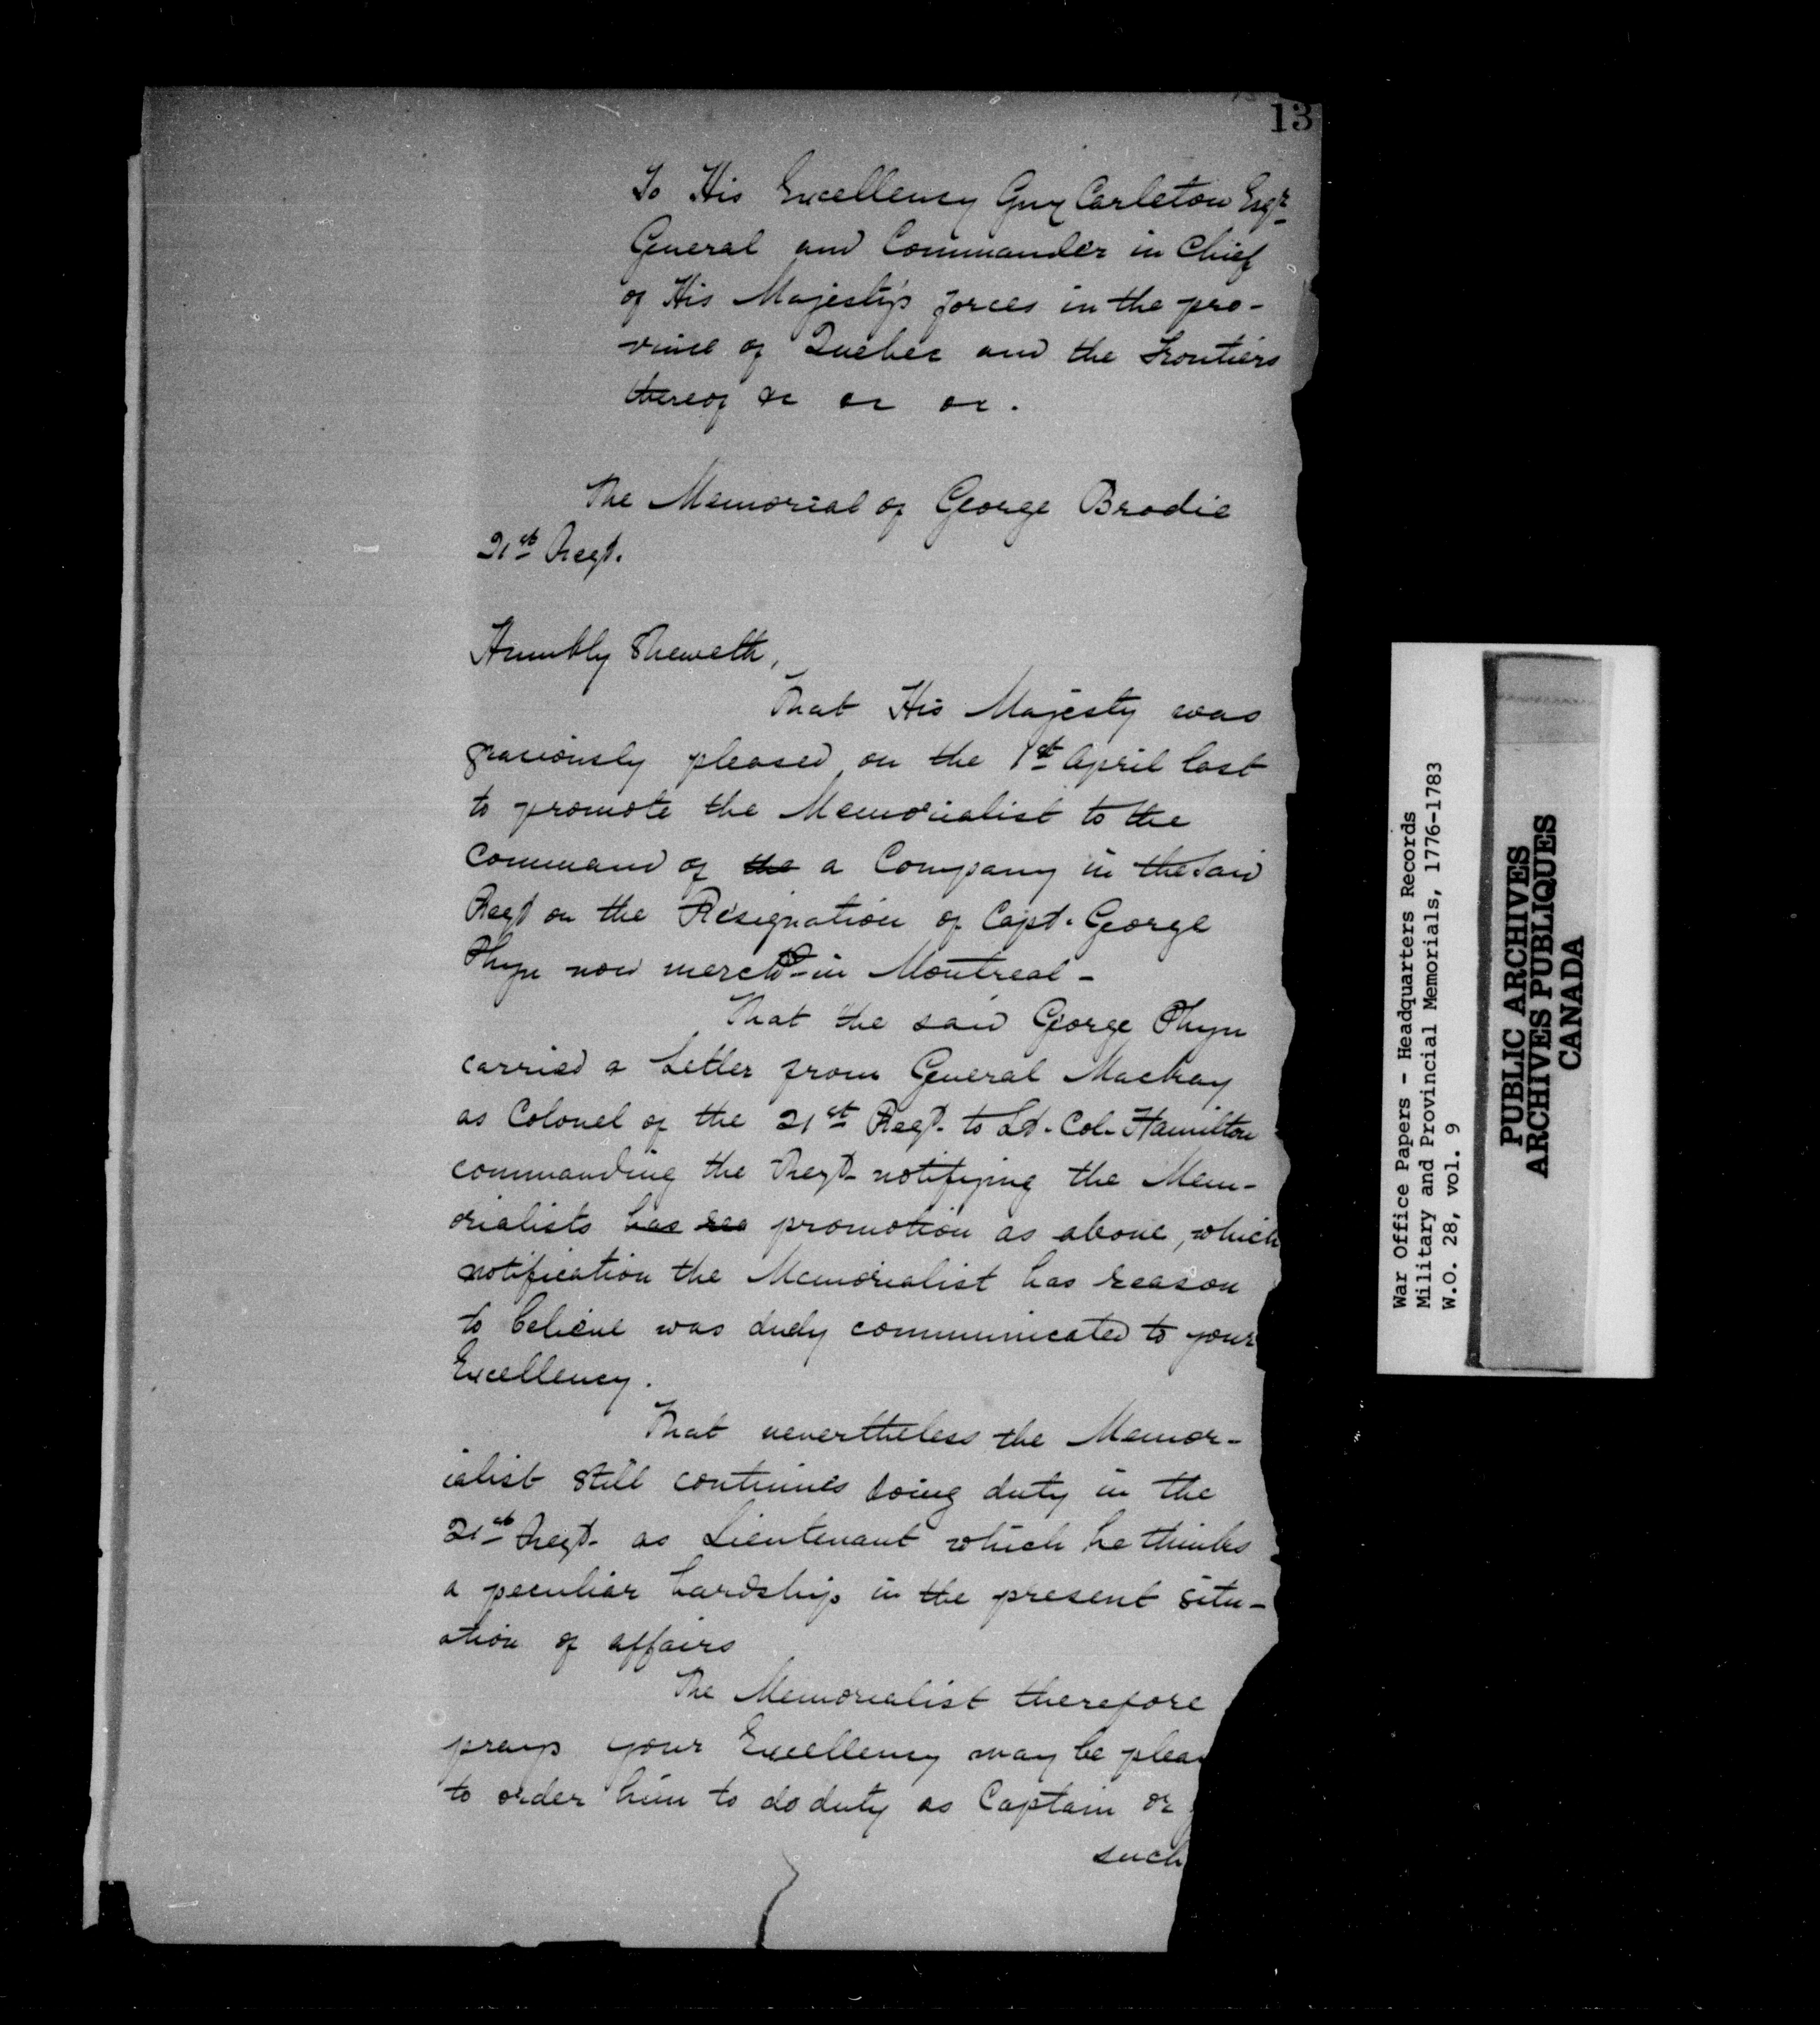 13
To His Excellency Guy Carleton Esqr
General and Commander in Chief
of His Majesty's forces in the pro-
vince of Quebec and the Frontiers
thereof &c &c &c.
The Memorial of George Brodie
21st Regt.
Humbly Sheweth,
That His Majesty was
graciously pleased on the 1st April last
to promote the Memorialist to the
Command of the a Company in the Said
Regt on the Resignation of Capt. George
Phyn now mercht in Montreal -
That the said George Phyn
carried a Letter from General Mackay
as Colonel of the 21st Regt. to Lt. Col. Hamilton
commanding the Regt. notifying the Mem-
orialists has rea promotion as above, which
notification the Memorialist has reason
to believe was duly communicated to your
Excellency.
That nevertheless the Memor-
ialist still continues doing duty in the
21st Regt. as Lieutenant which he thinks
a peculiar hardship in the present situ-
ation of affairs
The Memorialist therefore
prays your Excellency may be pleas
to order him to do duty as Captain or
such
War Office Papers - Headquarters Records
Military and Provincial Memorials, 1776-1783
W.O. 28, vol. 9
PUBLIC ARCHIVES
ARCHIVES PUBLIQUES
CANADA